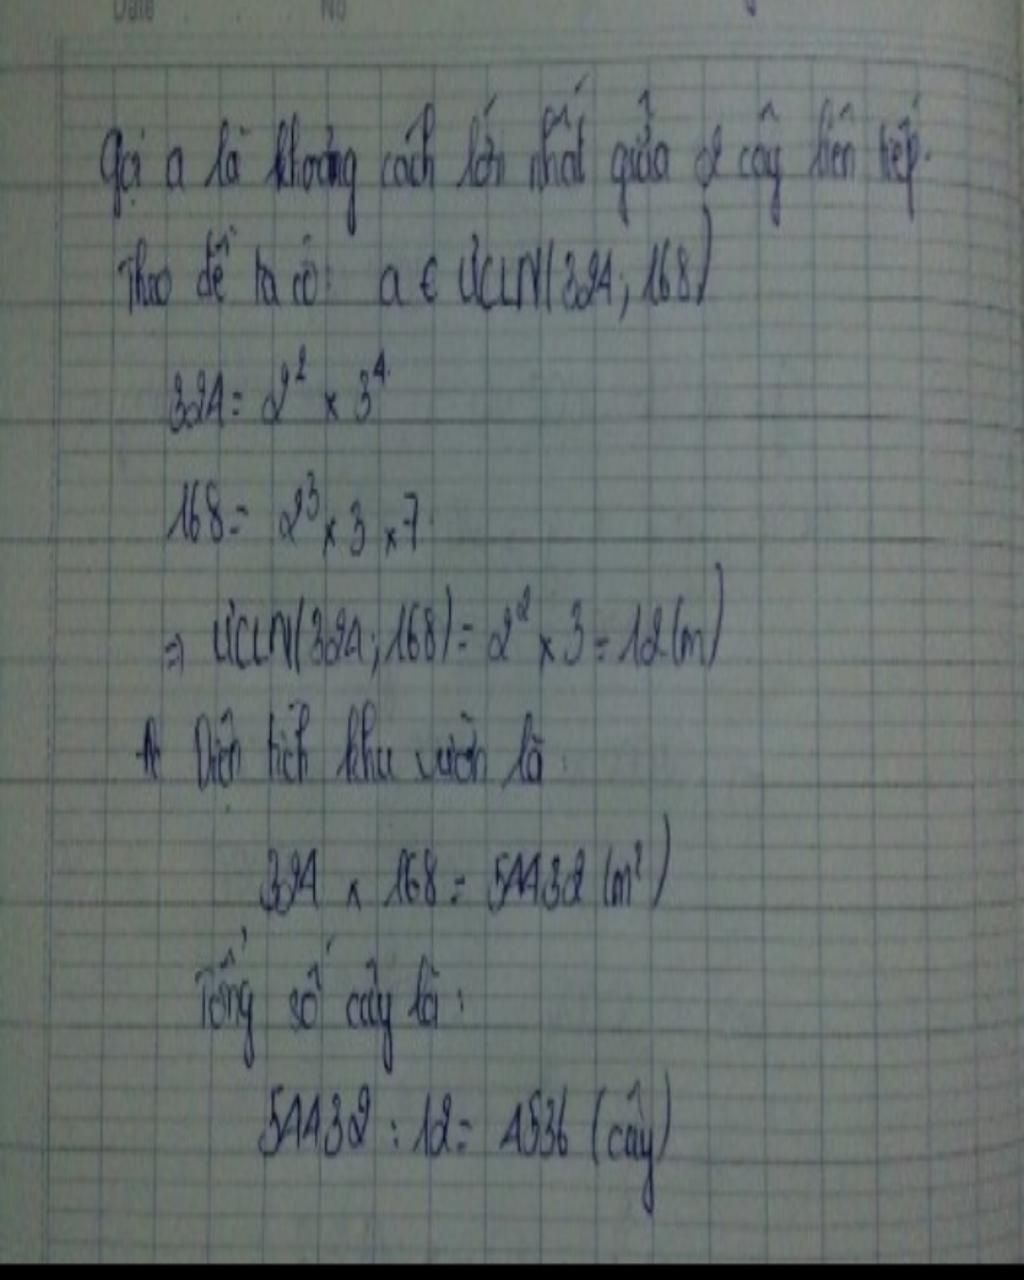 Date No
Gọi a là khoảng cách lớn nhất giữa 2 cây liên tiếp.
Theo đề ta có: a ∈ ƯCLN(324; 168)
324 = 2² × 3⁴
168 = 2³ × 3 × 7
⇒ ƯCLN(324; 168) = 2² × 3 = 12 (m)
Diện tích khu vườn là
324 × 168 = 54432 (m²)
Tổng số cây là:
54432 : 12 = 4536 (cây)